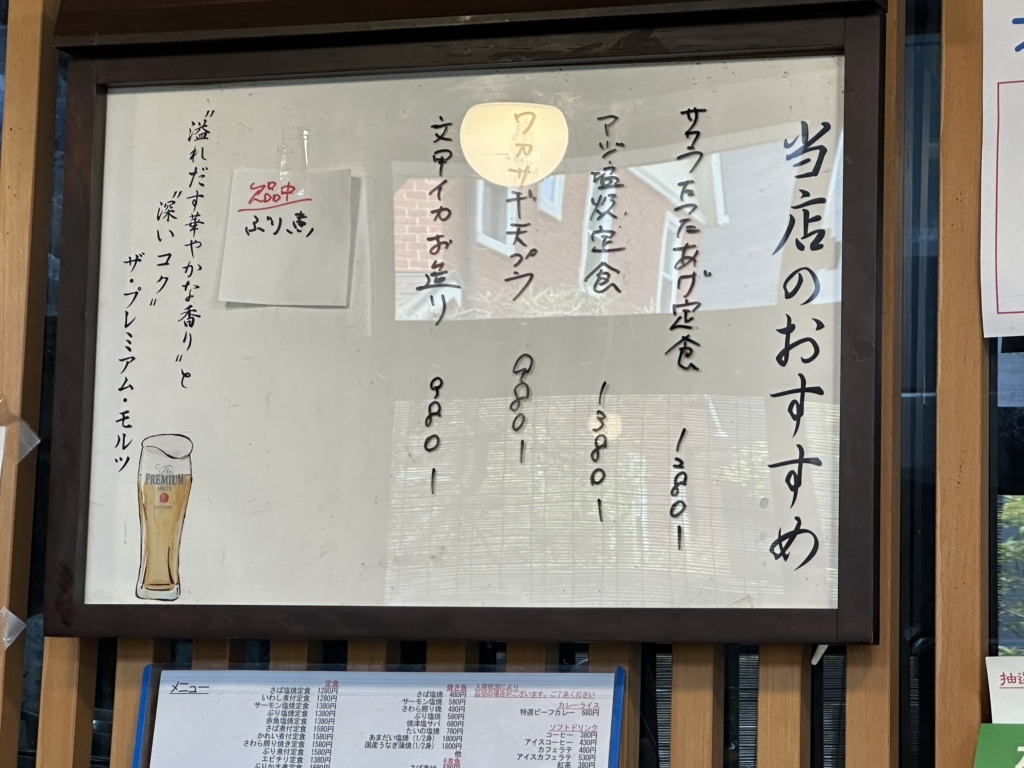 当店のおすすめ
サワラたつたあげ定食 1280ー
アジ塩焼定食 1380ー
ワカサギ天プラ 980ー
文甲イカお造り 980ー
欠品中
ぶり煮
“溢れだす華やかな香り”と
“深いコク”
ザ・プレミアム・モルツ
The
PREMIUM
MALT'S
メニュー
定食
さば塩焼定食 1280円
いわし煮付定食 1280円
サーモン塩焼定食 1380円
ぶり塩焼定食 1380円
赤魚塩焼定食 1380円
さば煮付定食 1580円
かれい煮付定食 1580円
さわら照り焼き定食 1580円
ぶり煮付定食 1580円
エビチリ定食 1380円
焼き魚
さば塩焼 480円
サーモン塩焼 580円
さわら照り焼 480円
ぶり塩焼 580円
焼津塩サバ 680円
たいの塩焼 780円
あまだい塩焼（1/2身） 1800円
国産うなぎ蒲焼（1/2身） 1800円
他
煮魚
入荷状況により
品切の場合がございます。ご了承ください
カレーライス
特選ビーフカレー 680円
ソフトドリンク
コーヒー 380円
アイスコーヒー 430円
カフェラテ 480円
アイスカフェラテ 530円
紅茶 380円